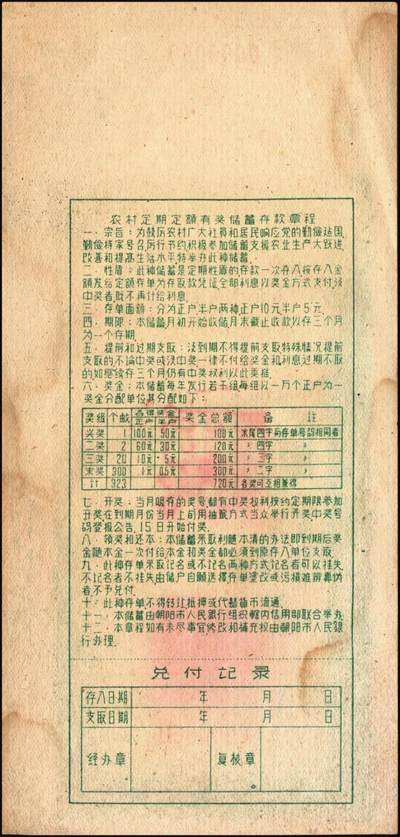 农村定期定额有奖储蓄存款章程
一．宗旨：为鼓厉农村广大社员和居民响应党的勤俭建国
勤俭持家号召厉行节约积极参加储蓄支援农业生产大跃进
改善和提高生活水平特举办此种储蓄．
二．性质：此种储蓄是定期性质的存款一次存入按存入金
额发给定额存单为存取款凭证全部利息以奖金方式支付没
中奖者既不再计给利息．
三．存单面额：分为正户半户两种正户10元半户5元．
四．期限：本储蓄月初开始收储月末截止收款以存三个月
为一个存期．
五．提前和过期支取：没到期不得提前支取特殊情况提前
支取的不论中奖或没中奖一律不付给奖金和利息过期不取
的如继续存三个月仍有中奖权利以此类推．
六．奖金：本储蓄每年发行若干组每组以一万个正户为一
奖金分配单位其分配如下：
奖级 个数 各得奖金 正户 半户 奖金总额 备 注
头奖 1 100元 50元 100元 末尾四字与存单号码相同者
二奖 2 60元 30元 120元 〃 四字 〃
三奖 20 10元 5元 200元 〃 三字 〃
末奖 300 1元 0.5元 300元 〃 二字 〃
计 323 720元 各奖可交相兼得
七．开奖：当月吸存的奖号都有中奖权利按约定期限参加
开奖在到期月份当月上旬用抽瓶方式当众举行开奖中奖号
码登报公告，15日开始付奖．
八．领奖和还本：本储蓄采取利随本清的办法即到期后奖
金随本金一次付给本金和奖金都必须到原存入单位支取．
九．此种存单采取记名或不记名两种方式记名者可以挂失
不记名者不挂失由储户自愿选择存单塗改或污损难辨真伪
者不予兑付．
十．此种存单不得转让抵押或代替货币流通．
十一．本储蓄由朝阳市人民银行组织辖内信用部联合举办．
十二．本章程如有未尽事宜修改和補充权由朝阳市人民银
行办理．
兑付记录
存入日期 年 月 日
支取日期 年 月 日
经办章 复核章